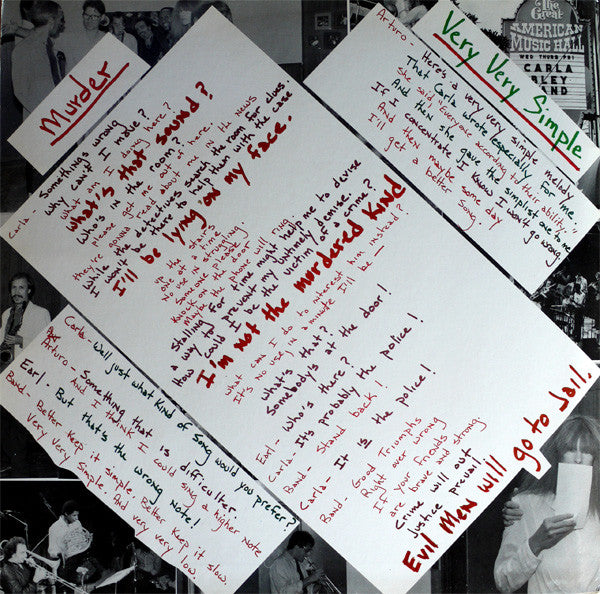 Murder
Carla - Somethings wrong
why can't I move?
What am I doing here?
What's that sound?
Who's in the room?
please get me out of here.
they're gonna read about me in the news
While the detectives search the room for clues.
I won't be there to help them with the case
I'll be lying on my face.
No use in
Someone please
Knock on the door or
maybe the phone will ring
Stalling for time might help me to device
a way to prevent my untimely demise.
How could I be the victim of a crime?
I'm not the murdered kind
What can I do to interest him instead?
It's no use, in a minute I'll be —
What's that?
Somebody's at the door!
Earl - Who's there?
Carla - It's probably the police!
Band - Stand back!
Carla - It is the police!
Band - Good Triumphs
Right over wrong
If your friends
are brave and strong.
Crime will out
Justice prevail.
Evil Men will go to Jail.
Very Very Simple
Arturo - Here's a very very simple melody
That Carla wrote especially for me
She said "Everyone according to their ability"
And then she gave the simplist one to me
If I concentrate I know I won't go wrong
And then maybe some day
I'll get a better song.
Carla - Well just what kind of song would you prefer?
Arturo - Something that is difficulter
And I think I could sing a higher note
Earl - But that's the wrong note!
Band - Better keep it simple. Better keep it slow.
Very very simple. And very very low.
The Great
AMERICAN
MUSIC HALL
CARLA
BLEY
BAND